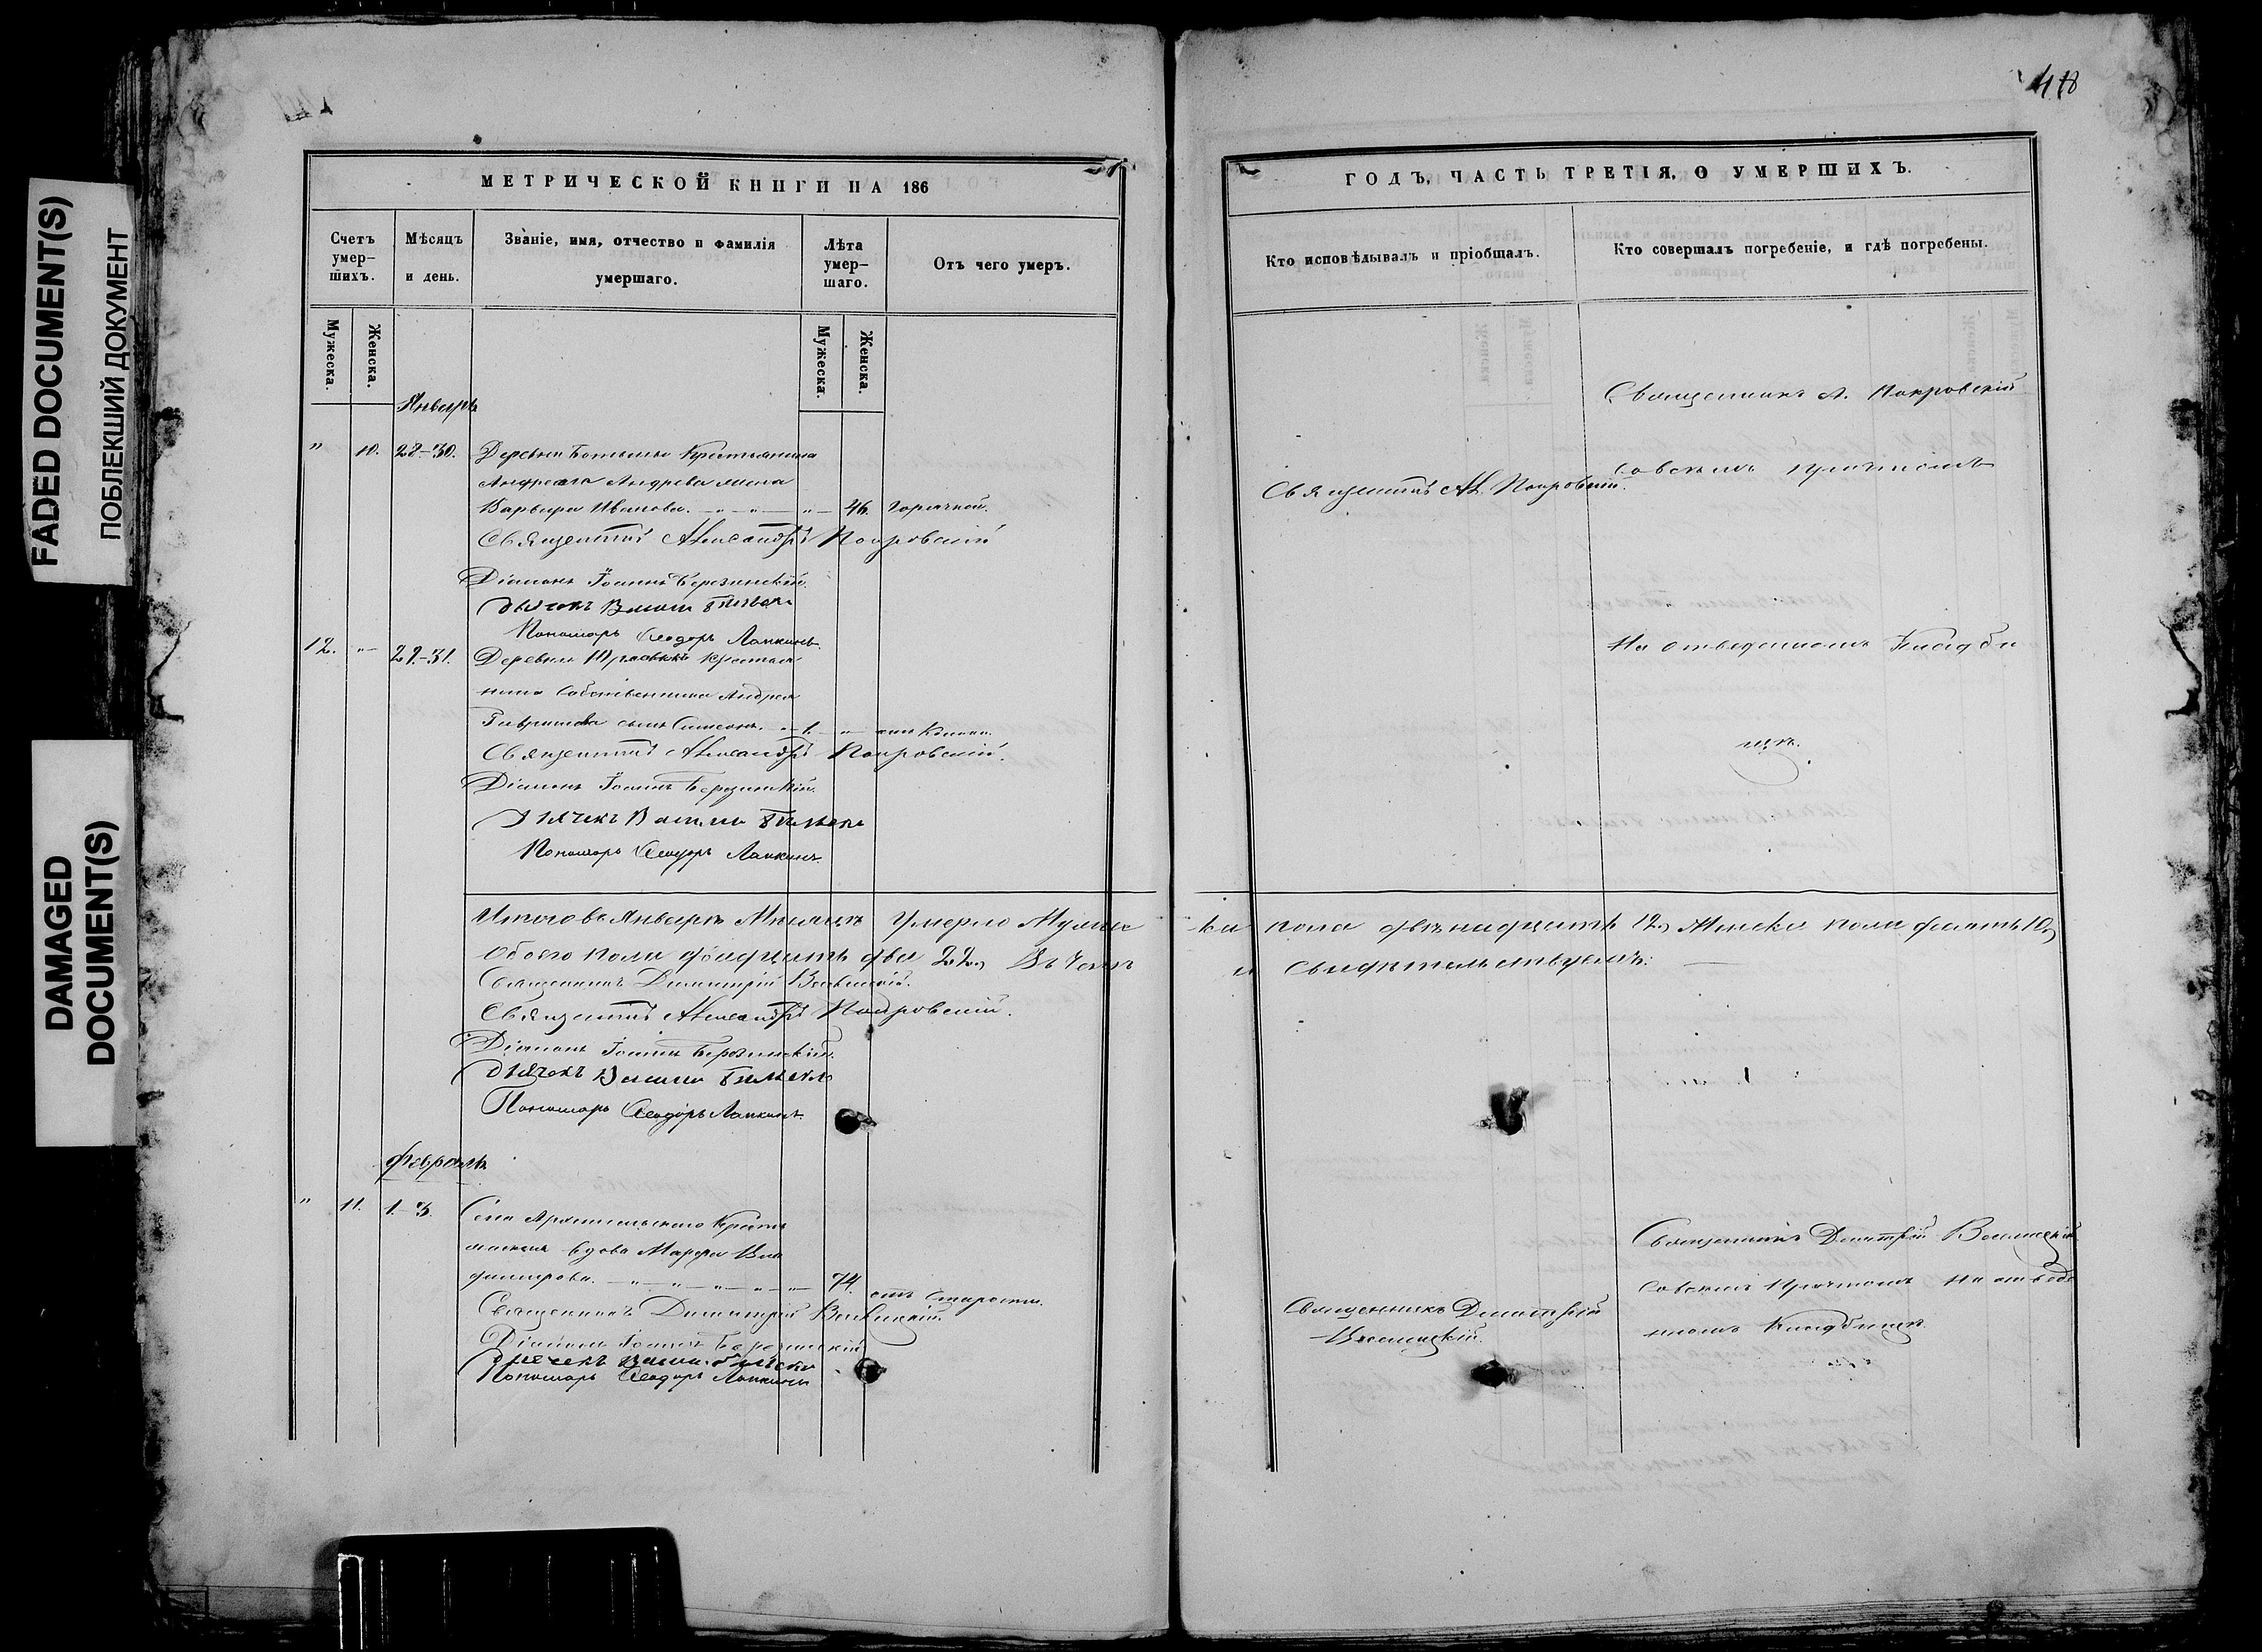 FADED DOCUMENT(S)
ПОБЛЕКШИЙ ДОКУМЕНТ
DAMAGED
DOCUMENT(S)
МЕТРИЧЕСКОЙ КНИГИ НА 186
Счетъ умер-шихъ.
Мѣсяцъ и день.
Званіе, имя, отчество и фамилія умершаго.
Лѣта умер-шаго.
Отъ чего умеръ.
Мужеска.
Женска.
Мужеска.
Женска.
Январь
" 10. 28.-30. Деревни Крестьянина
Андрея Андреева жена
Варвара Иванова. 46. Горячкой.
Священникъ Александръ Покровскій
Діаконъ Іоаннъ Березинскій.
Дьячекъ Василій
Пономарь Ѳеодоръ Лапкинъ
12. 29.-31. Деревни крестья-
нина собственника Андрея
Гаврилова сынъ Симеонъ. 1.
Священникъ Александръ Покровскій.
Діаконъ Іоаннъ Березинскій.
Дьячекъ Василій
Пономарь Ѳеодоръ Лапкинъ
Итого въ Январѣ Мѣсяцѣ умерло Мужес
Обоего пола двадцать два 22, Въ чемъ
Священникъ Димитрій
Священникъ Александръ Покровскій.
Діаконъ Іоаннъ Березинскій.
Дьячекъ Василій
Пономарь Ѳеодоръ Лапкинъ
Февраль
" 11. 1.-3. Села Крестья-
вдова Марфа Вла
димирова. 74. отъ старости.
Священникъ Димитрій
Діаконъ Іоаннъ Березинскій
Дьячекъ Василій
Пономарь Ѳеодоръ Лапкинъ
418
ГОДЪ, ЧАСТЬ ТРЕТІЯ, О УМЕРШИХЪ.
Кто исповѣдывалъ и пріобщалъ.
Кто совершалъ погребеніе, и гдѣ погребены.
Священникъ А. Покровскій
Священникъ Ал. Покровскій.
со всѣмъ причтомъ
На отведенномъ кладби
щѣ.
ка пола двѣнадцать 12, Женска пола десять 10,
и Свидѣтельствуемъ:
Священникъ Димитрій
Священникъ Димитрій
со всѣмъ причтомъ на отведе
нномъ кладбищѣ